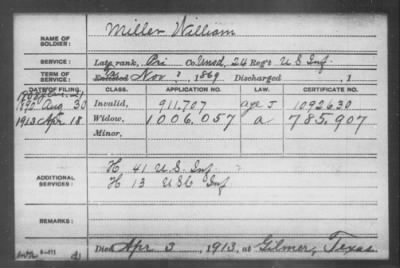 NAME OF SOLDIER: Miller William
SERVICE: Late rank, Pri Co. Unsd, 24 Reg't U S Inf
TERM OF SERVICE: Enlisted Nov ? 1869 Discharged , 1
DATE OF FILING. CLASS. APPLICATION NO. LAW. CERTIFICATE NO.
1890 Aug 30 Invalid, 911,707 age J 1092630
1913 Apr 18 Widow, 1006,057 a 785,907
Minor,
H 41 U.S. Inf
ADDITIONAL SERVICES: H 13 USC Inf
REMARKS:
Died Apr 3, 1913, at Gilmer, Texas